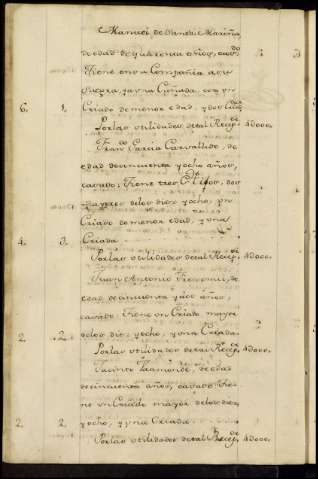 Manuel de Mariño,
de edad de quarenta años, cas.do
tiene en su Compañia a su
suegra, y a una Cuñada, con un
6. 1. Criado de menor edad, y dos
Por las utilidades de tal Recep.r
Fran.co Garcia Carvallido, de
edad de cinquenta y ocho años,
casado; tiene tres hijos, dos
mayores de los diez y ocho, un
Criado de menor edad, y una
4. 3. Criada
Por las utilidades de tal Recep.r
Juan Antonio de
edad de cinquenta y dos años,
casado tiene un Criado mayor
2. 2. de los diez y ocho, y una Criada
Por las utilidades de tal Recep.r
Jacinto de edad
de cinquenta años, casado tie-
ne un Criado mayor de los diez
2. 2. y ocho, y una Criada
Por las utilidades de tal Recep.r